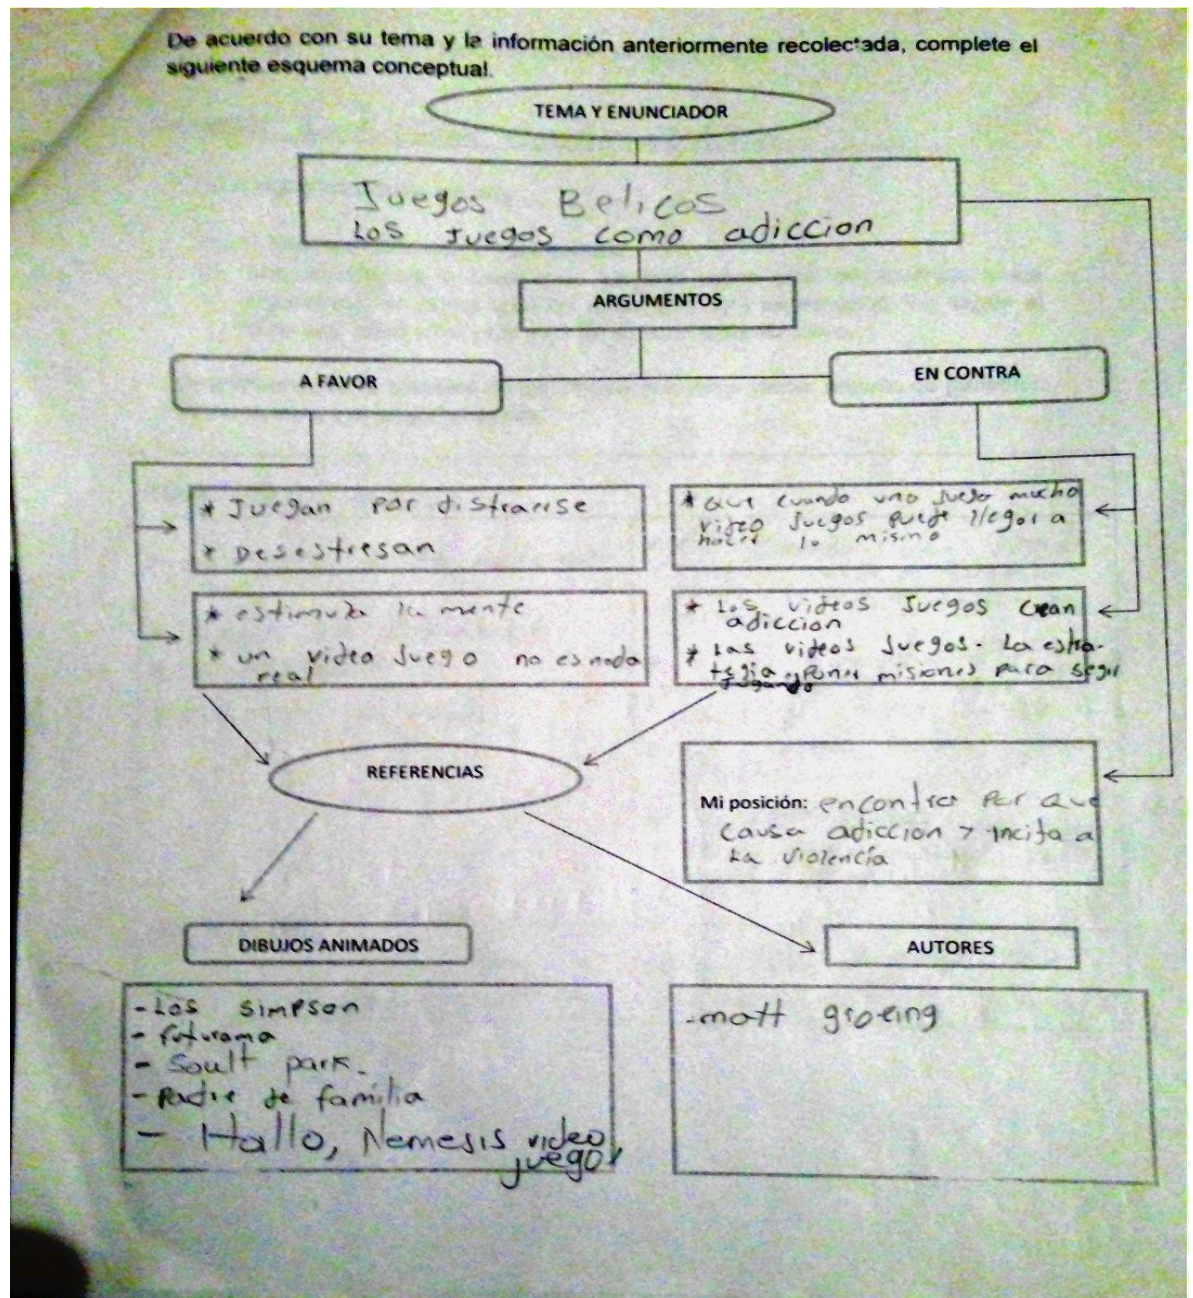 De acuerdo con su tema y la información anteriormente recolectada, complete el
siguiente esquema conceptual.
TEMA Y ENUNCIADOR
Juegos Belicos
Los Juegos como adiccion
ARGUMENTOS
A FAVOR
EN CONTRA
* Juegan por distraerse
* Desestresan
* que cuando uno juega mucho
video Juegos puede llegar a
hacer lo mismo
* estimula la mente
* un video Juego no es nada
real
* Los videos Juegos crean
adiccion
* Las videos Juegos. La estra-
tegia es poner misiones para seguir
jugando
REFERENCIAS
Mi posición: encontra por que
causa adiccion y incita a
La violencía
DIBUJOS ANIMADOS
AUTORES
- Los Simpson
- futurama
- Soult park.
- Padre de familia
- Hallo, Nemesis video
juego
- matt groeing